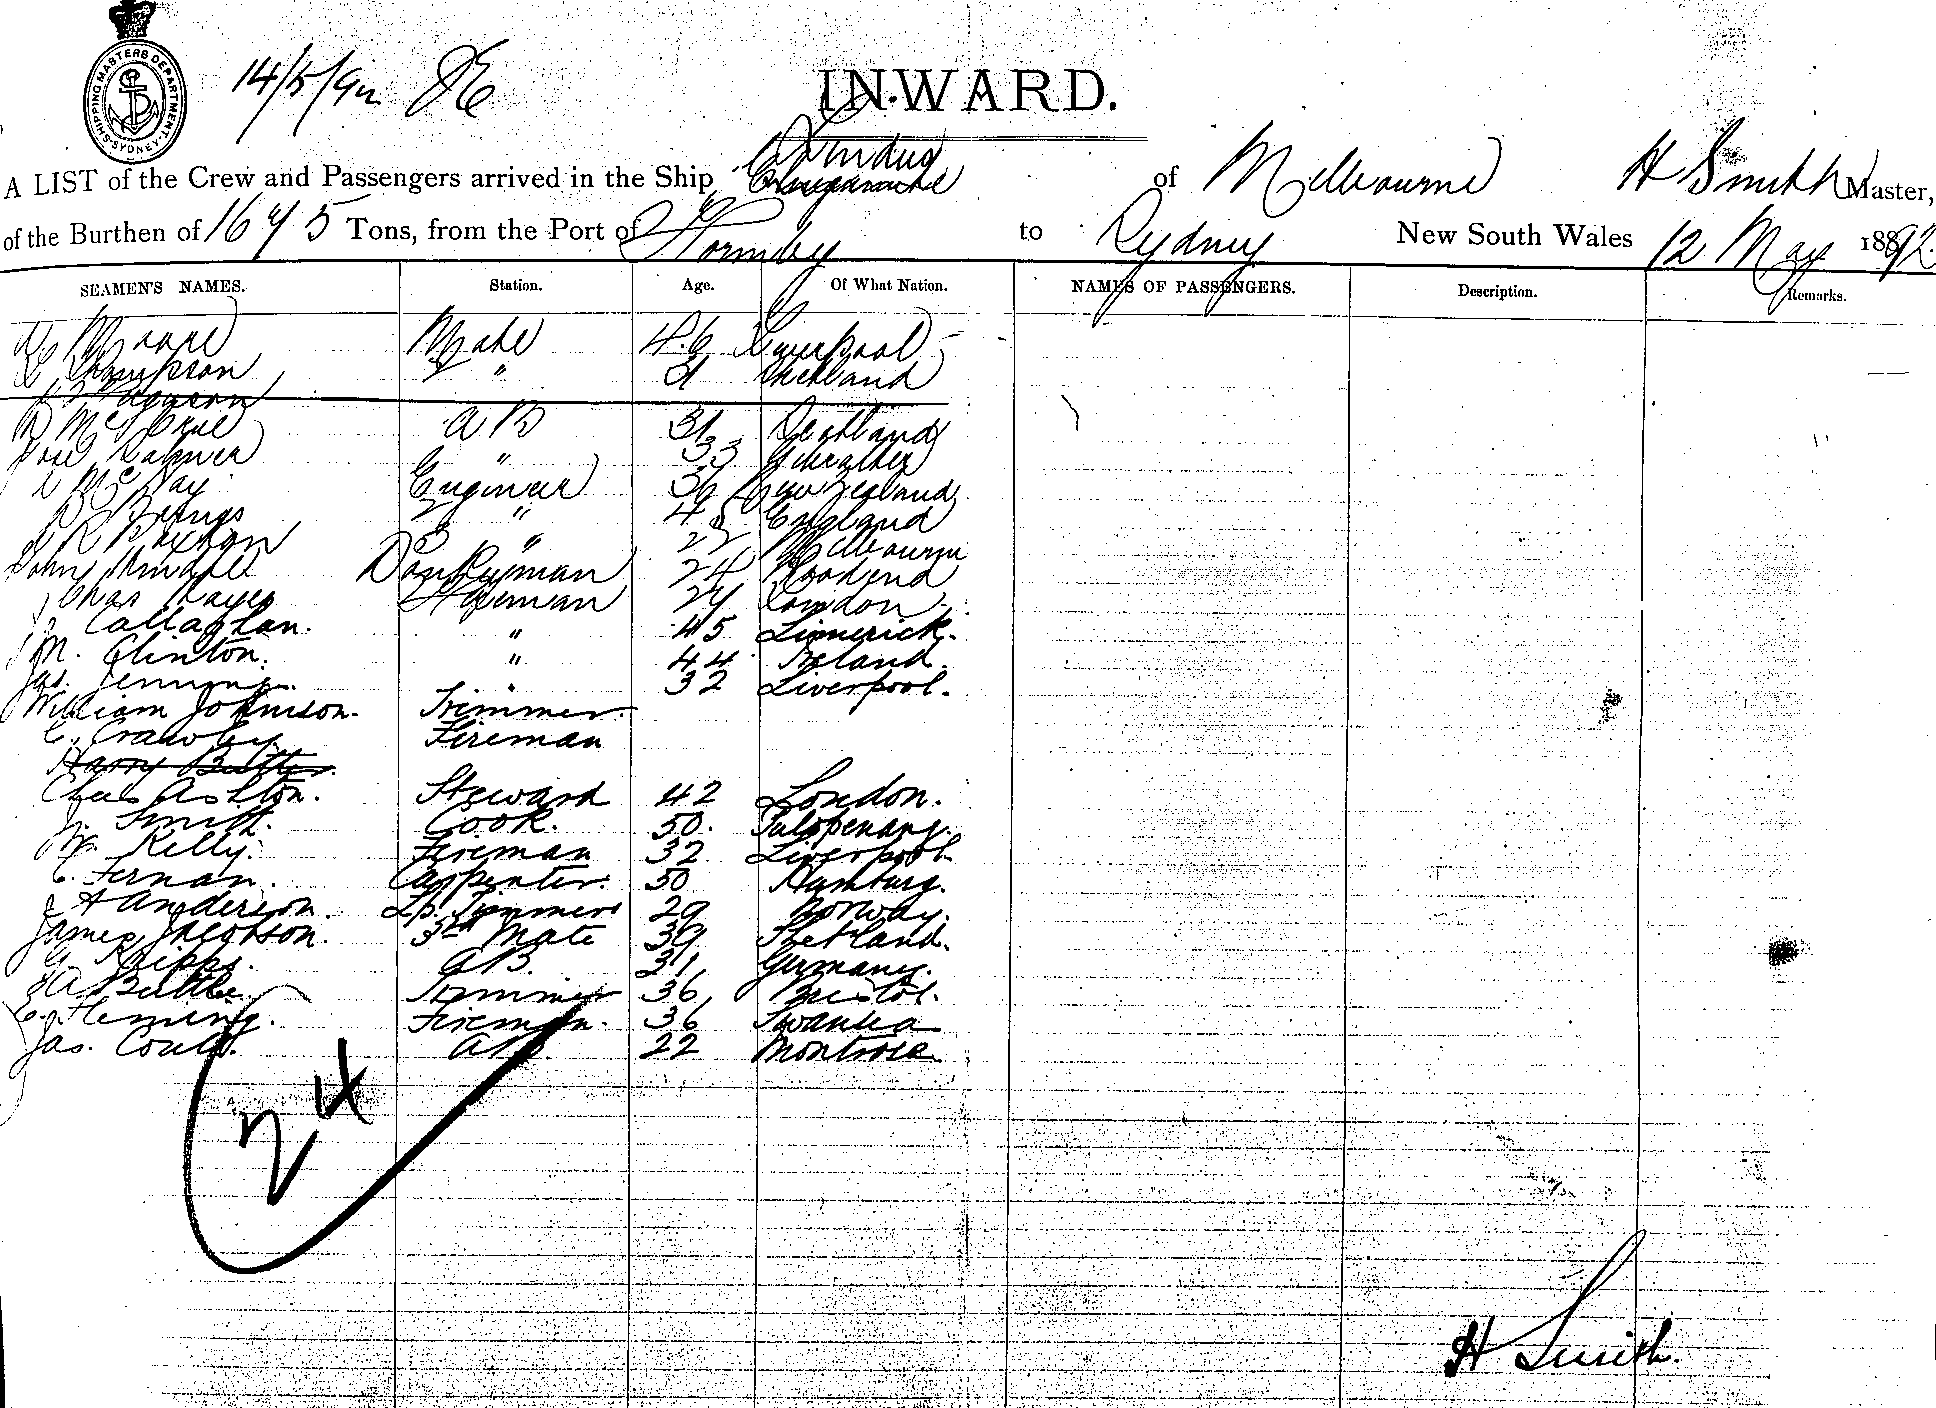 SHIPPING MASTERS DEPARTMENT. SYDNEY
14/5/92
INWARD.
A LIST of the Crew and Passengers arrived in the Ship of Melbourne H Smith Master,
of the Burthen of 1675 Tons, from the Port of Hornsby to Sydney New South Wales 12 May 1892
SEAMEN'S NAMES. Station. Age. Of What Nation. NAMES OF PASSENGERS. Description. Remarks.
Moore Mate 46 Liverpool
Thompson 2 " 21
Ferguson
A B 31 Scotland
" 33 Gibraltar
McKay Engineer 36 New Zealand
2 " England
3 " 27 Melbourne
John Donkeyman 24
Chas Hayes Fireman London
Callaghan. " 45 Limerick.
M. Clinton. " 44 Ireland.
Jas. Jennings. " 32 Liverpool.
William Johnson. Trimmer.
C. Crawley. Fireman
Harry Butler.
Chas Ashton. Steward 42 London.
J. Smith. Cook. 50. Pulopenang.
Kelly. Fireman 32 Liverpool.
C. Fernan. Carpenter. 50 Hamburg.
Anderson. Lp. Trimmer 29 Norway.
James Jacobson. 3rd Mate 39 Shetland.
AB. 31 Germany.
Butler Trimmer 36 Bristol.
C. Fleming. Fireman. 36 Swansea
Jas. Coutts. AB. 22 Montrose
24
H Smith.